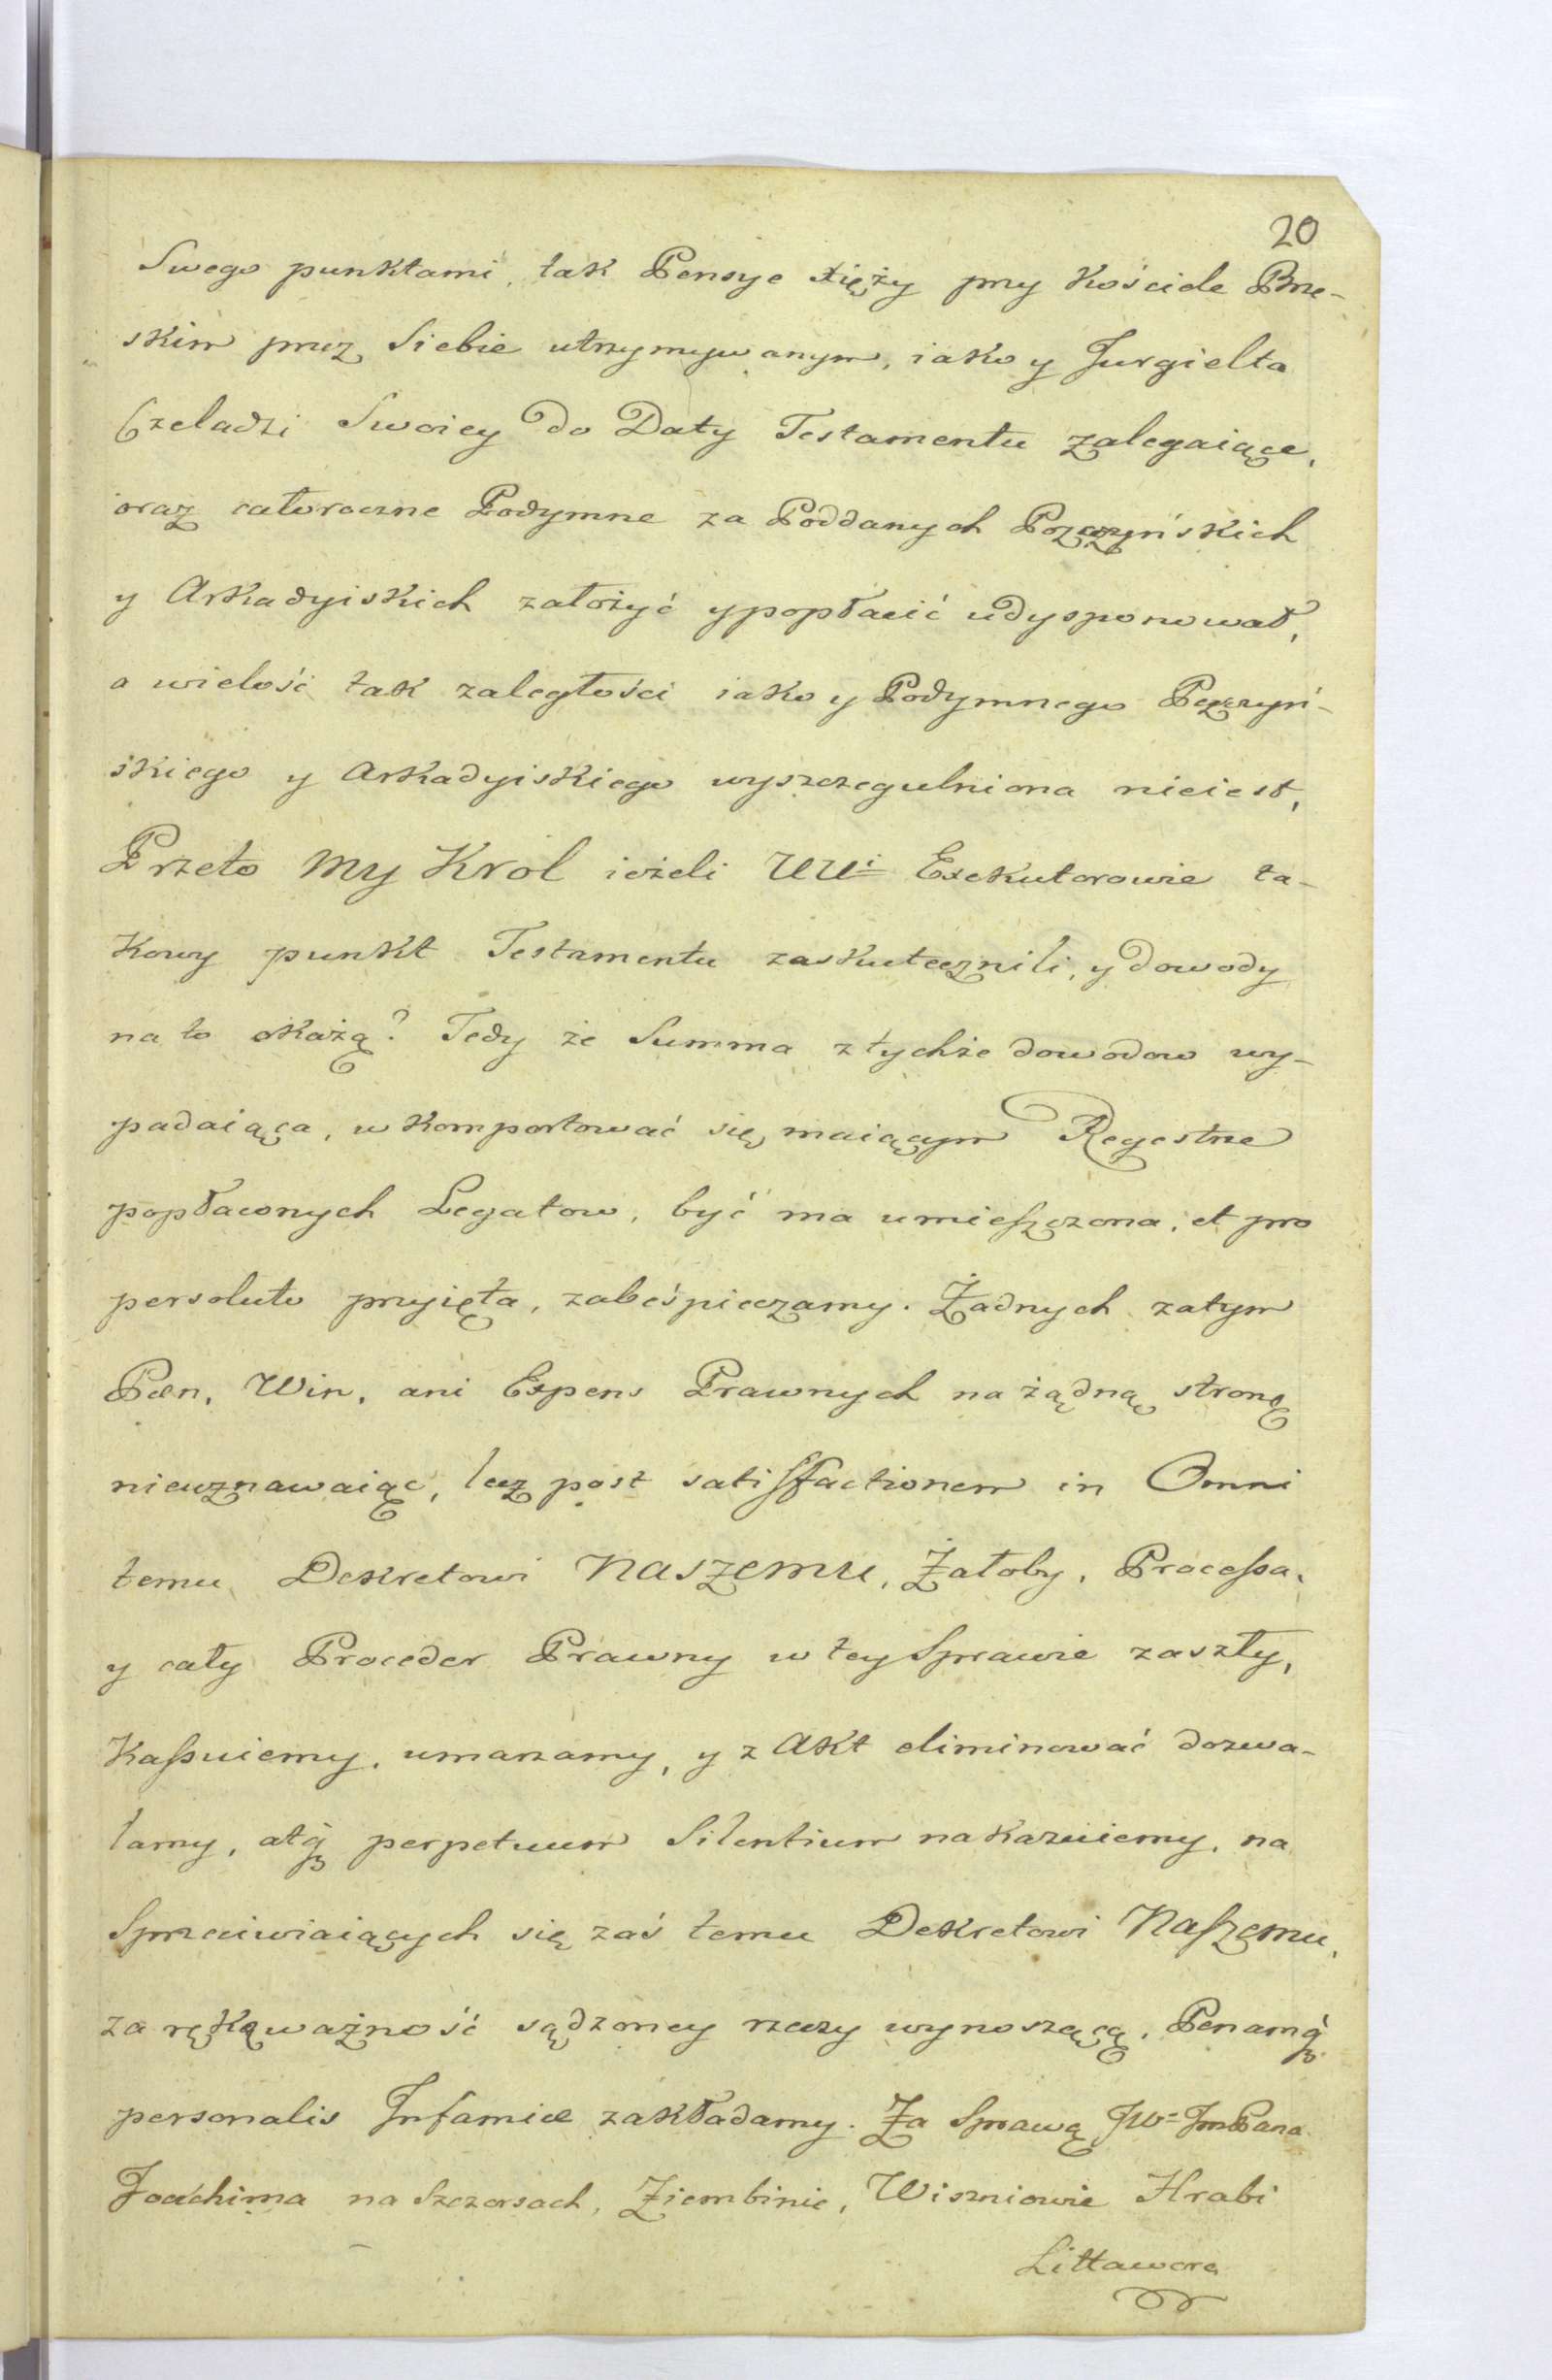 20
Swego punktami, tak Pensye Xięży przy Kościele Brze-
skim przez Siebie utrzymywanym, iako y Jurgielta
Czeladzi Swoiey do Daty Testamentu zalegaiące,
oraz całoroczne Podymne za Poddanych
y Arkadyiskich założyć y popłacić udysponował,
a wielość tak zaległości iako y Podymnego
skiego y Arkadyiskiego wyszczegulniona nieiest,
Przeto My Krol ieżeli UUi Exekutorowie ta-
kowy punkt Testamentu zaskutecznili, y dowody
na to okażą? Tedy że Summa z tychże dowodow wy-
padaiąca, w komportować się maiącym Regestrze
popłaconych Legatow, być ma umieszczona, et pro
persoluto przyięta, zabeśpieczamy. Żadnych zatym
Pæn, Win, ani Expens Prawnych na żądną stronę
nieuznawaiąc, lecz post satisfactionem in Omni
temu Dekretowi Naszemu, Żałoby, Processa,
y cały Proceder Prawny w tey Sprawie zaszły,
Kassuiemy, umarzamy, y z Akt eliminować dozwa-
lamy, atq perpetuum Silentium nakazuiemy, na
Sprzeciwiaiących się zaś temu Dekretowi Naszemu,
za rękę ważność sądzoney rzeczy wynoszącą, Penamq
personalis Infamiæ zakładamy. Za Sprawą JW= JmPana
Joachima na Szczorsach, Ziembinie, Wiszniowie Hrabi
Littawora